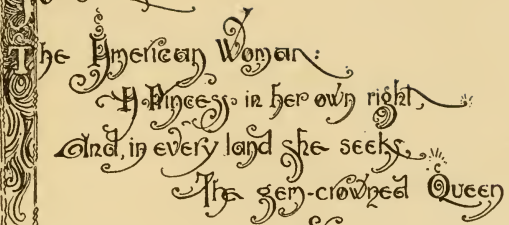 The American Woman:
A Princess in her own right,
And, in every land she seeks,
The gem-crowned Queen